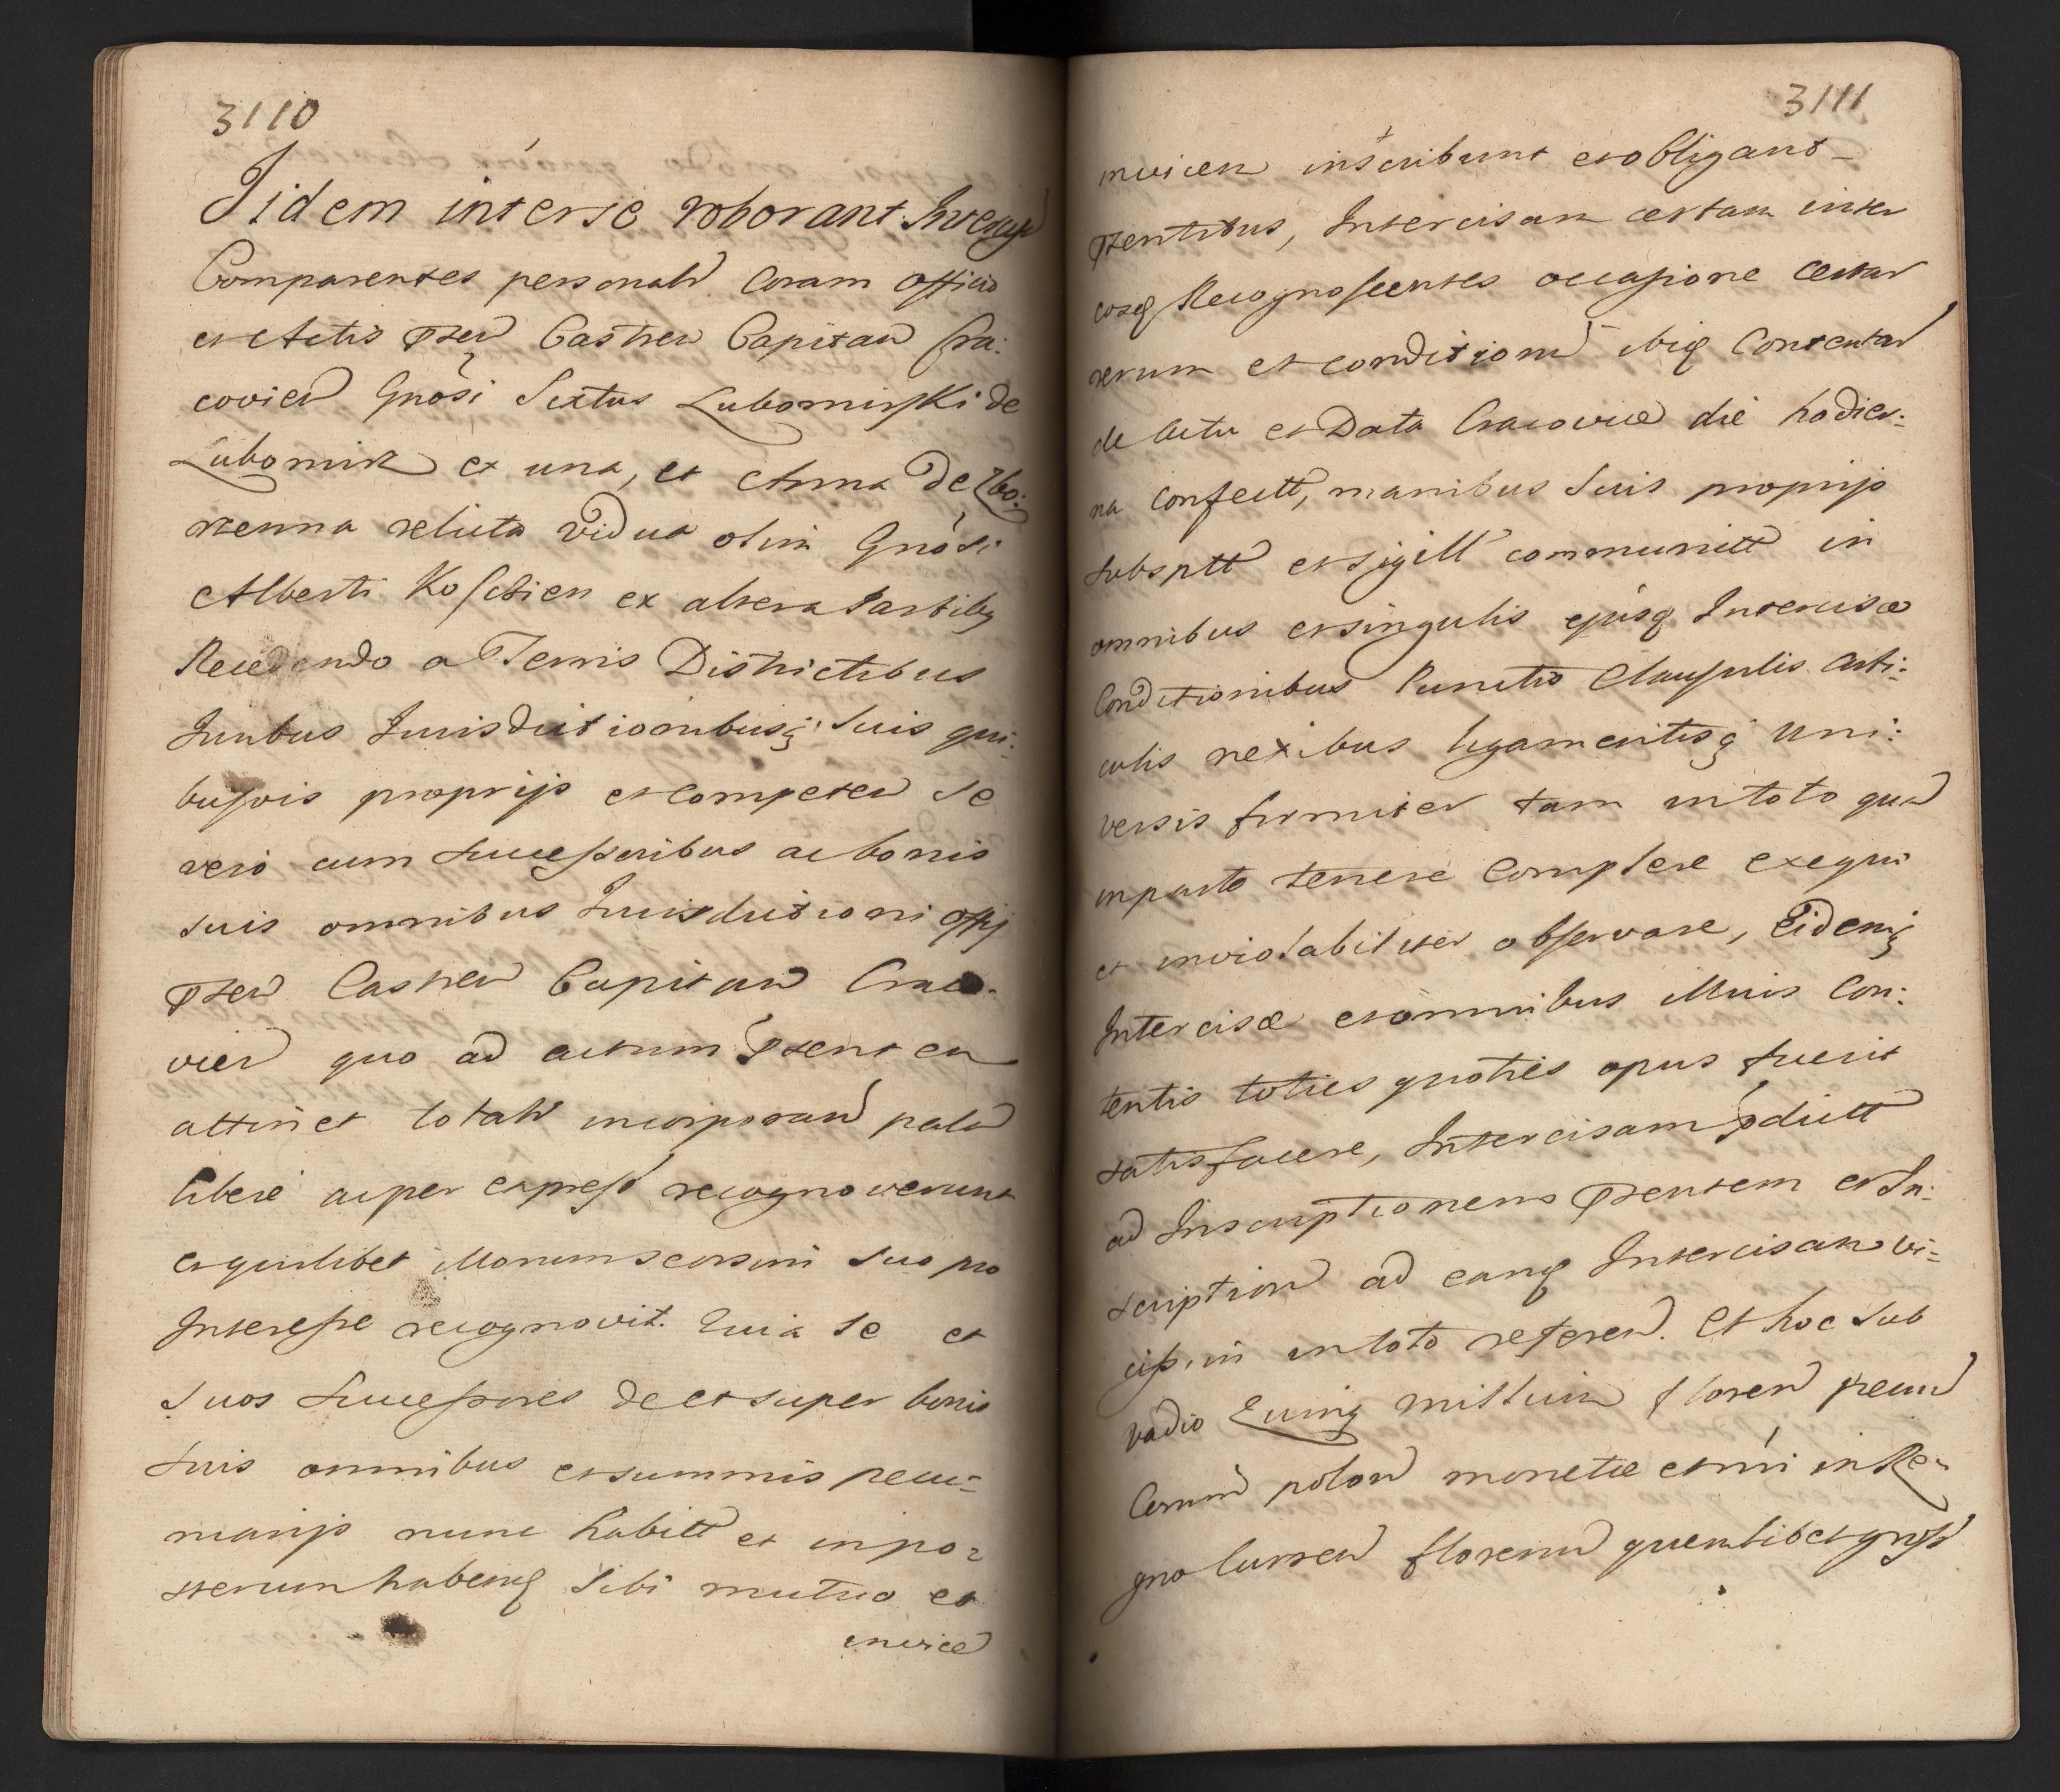 3110
Iidem interse roborant Intercis
Comparentes personalr Coram Officio
et Actis Pnter Castren Capitan Cra:
covien Gnosi Sixtus Lubomirski de
Lubomirz ex una, et Anna de Zbo:
rzenna relicta vidua olim Gnosi
Alberti Koscien ex altera Partibq
Recedendo a Terris Districtibus
Iuribus Iurisdictionibusq suis qui:
busvis proprijs et Competen se
vero cum Successoribus ac bonis
suis omnibus Iurisdictioni Offij
Pnter Castren Capitan Craco:
vien quo ad actum Pntentem
attinet totalr incorporand palam
libere ac per express recognoverunt
et quilibet illorum seorsim suo pro
Interesse recognovit. Quia se et
suos Successores de et super bonis
suis omnibus et summis pecu:
niarijs nunc habitt et in po:
sterum habendq sibi mutuo et
invice
3111
invicem inscribunt et obligant
Pntentibus, Intercisam certam inter
eosq Recognoscentes occasione certar
rerum et condition ibiq Contentar
de Actu et Data Cracoviæ die hodier:
na Confectt, manibus suis proprijs
subsptt et sigill communitt in
omnibus et singulis ejusq Intercisæ
Conditionibus Punctis Clausulis Arti:
culis nexibus ligamentisq Uni:
versis firmiter tam in toto quam
in parte tenere Complere exequi
et inviolabiliter observare, Eidemq
Intercisæ et omnibus illius Con:
tentis toties quoties opus fuerit
satisfacere, Intercisam pdictt
ad Inscriptionem Pntentem et In:
scription ad eamq Intercisam vi:
cissim in toto referen. Et hoc sub
vadio Quinq millium floren pecun
Cerum polon monetæ et nri in Re:
gno Curren florenum quemlibet gross